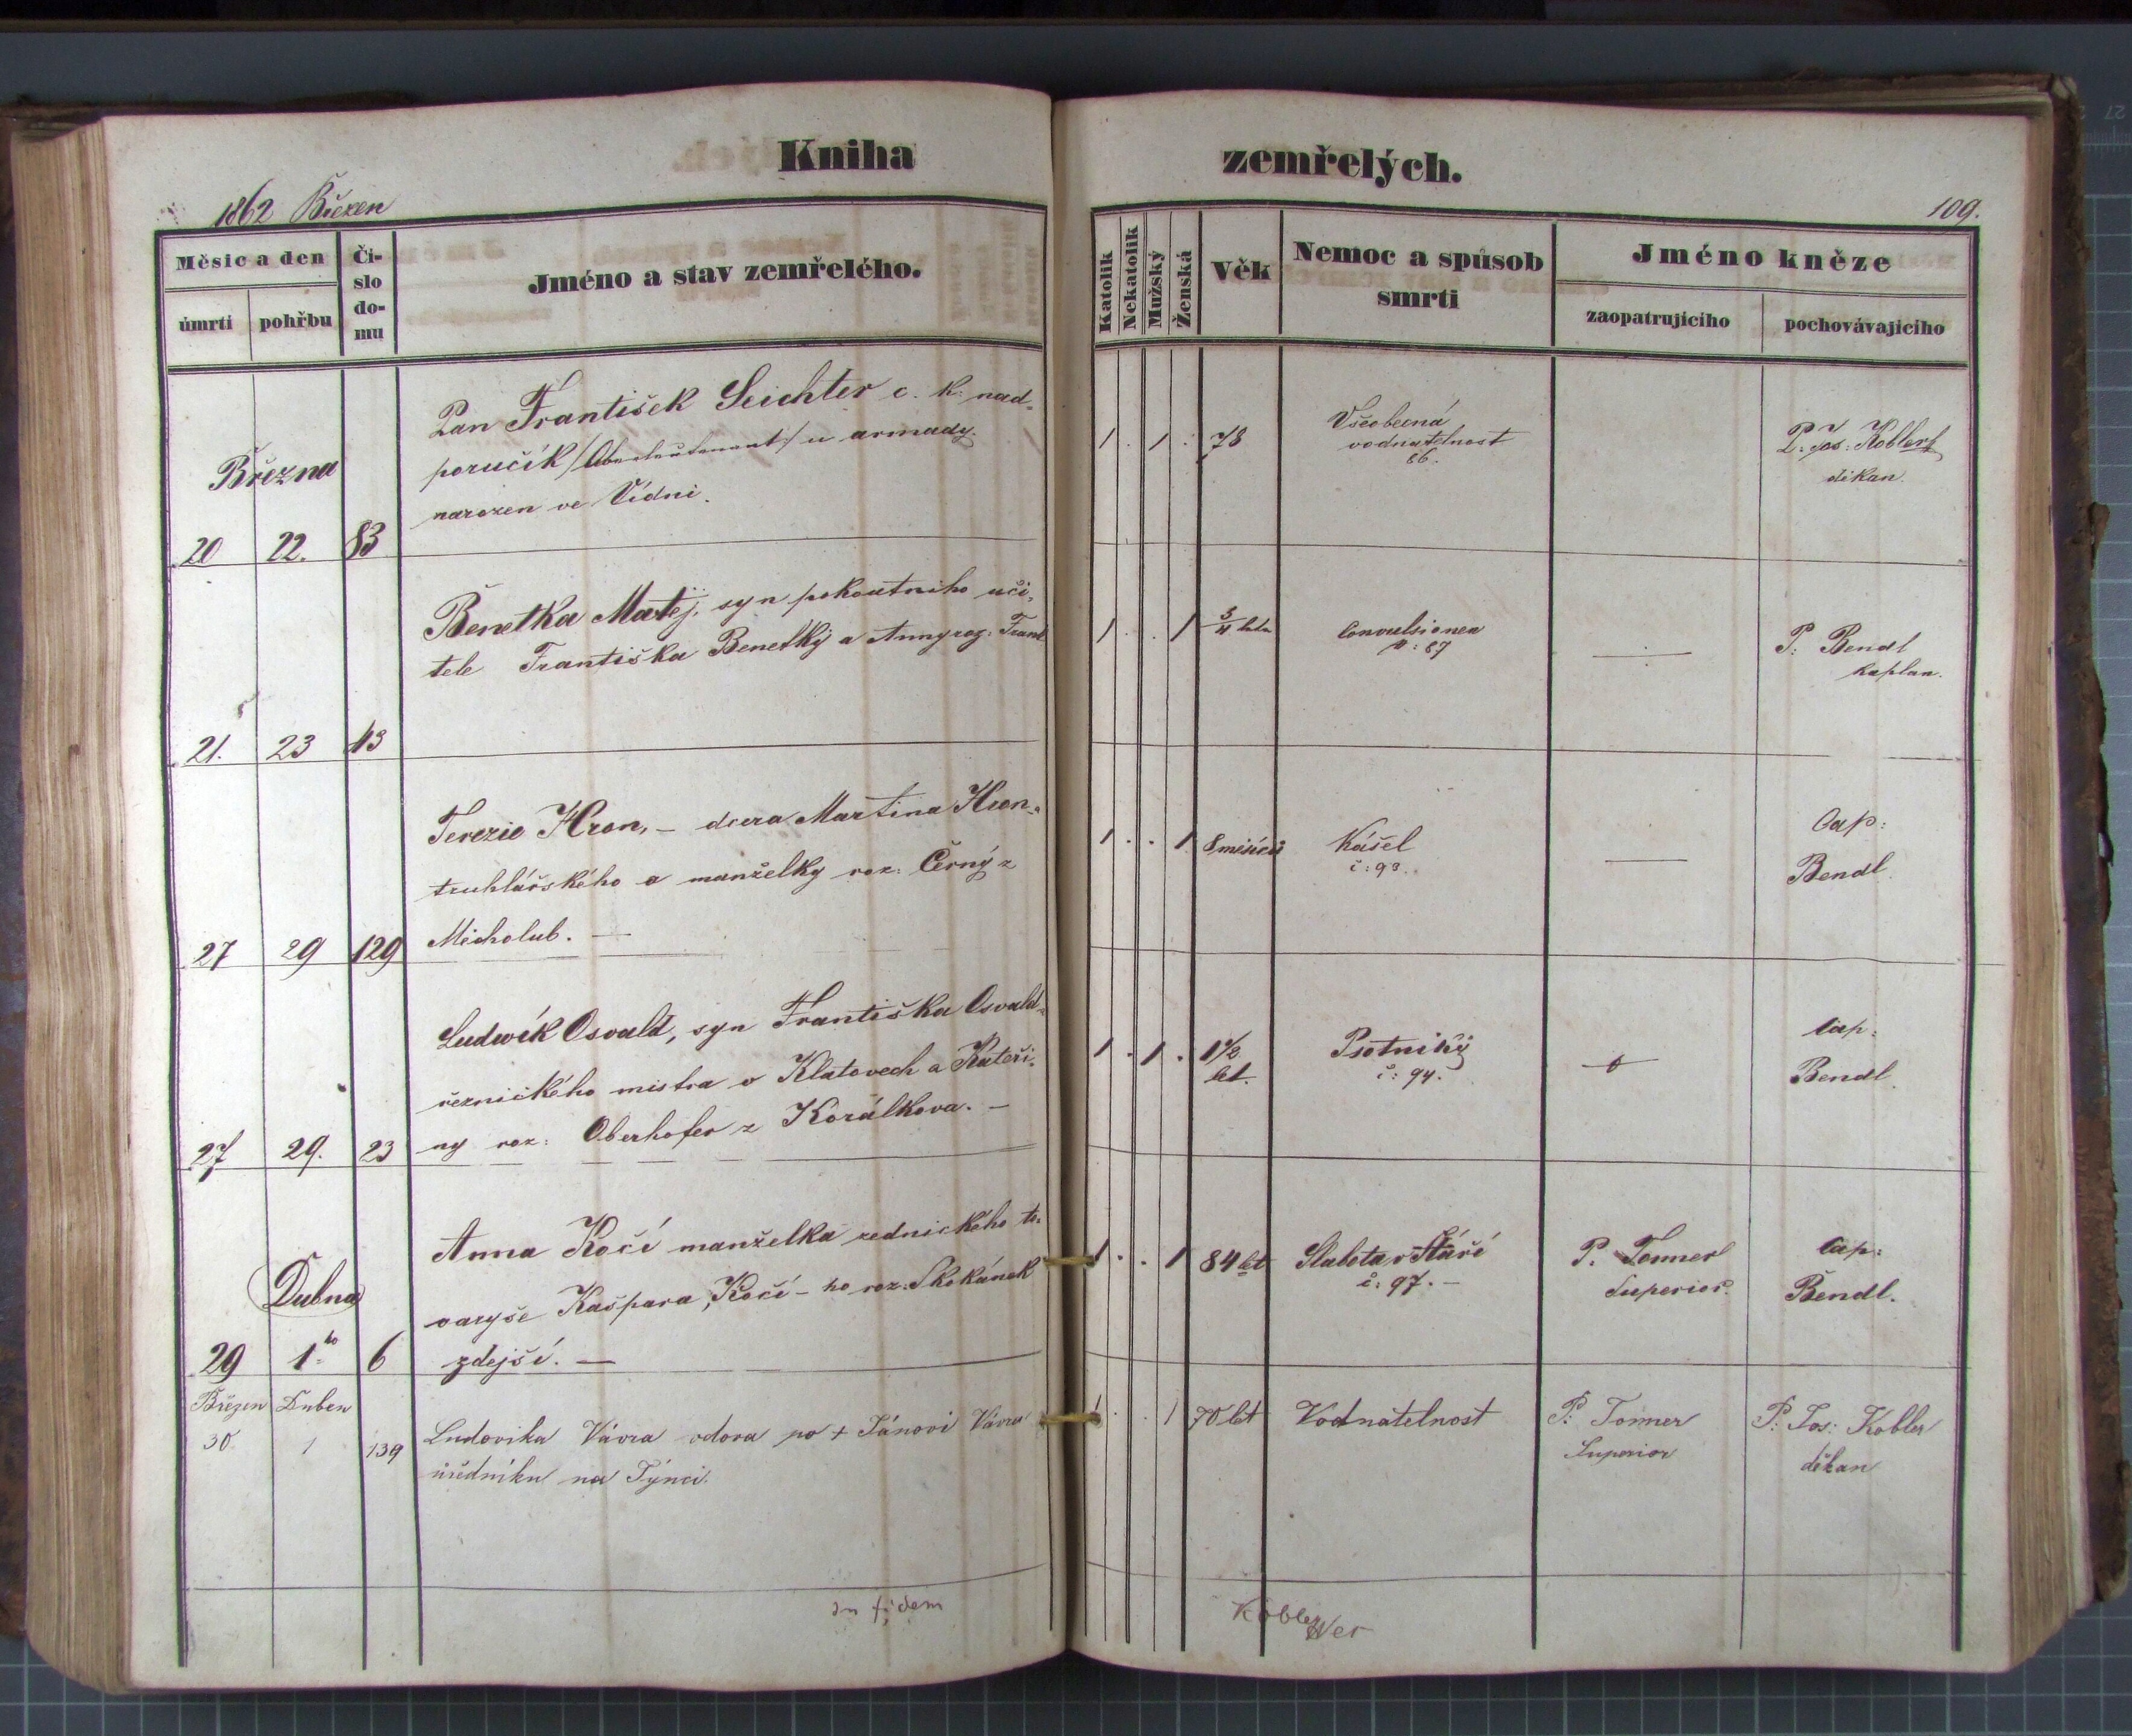 Kniha zemřelých.
1862 Březen
109.
Měsíc a den
úmrtí
pohřbu
Čí-
slo
do-
mu
Jméno a stav zemřelého.
Katolik
Nekatolik
Mužský
Ženská
Věk
Nemoc a spůsob
smrti
Jméno kněze
zaopatrujícího
pochovávajícího
Března
20 22. 83
Pan František Seichter c. k. nad-
poručík /Oberleutenant/ u armady.
narozen ve Vídni.
1 . 1 . 78
Všeobecná
vodnatelnost
86.
P. Jos: Kobler
děkan.
21. 23 43
Benetka Matěj, syn pokoutního uči-
tele Františka Benetky a Anny roz:
1 . . 1 3/4 leta
Convulsionen
N: 87
P: Bendl
kaplan.
27 29 129
Terezie Hron, – dcera Martina Hron-
truhlářského a manželky roz: Černý z
Mecholub. —
1 . . 1 8 měsíců
Kašel
č: 93.
Cap:
Bendl.
27 29. 23
Ludwík Osvald, syn Františka Osvald-
řeznického mistra v Klatovech a Kateři-
ny roz: Oberhofer z Korálkova. –
1 . 1 . 1 1/2
let.
Psotníky
č: 94.
Cap:
Bendl.
Dubna
29 1ho 6
Anna Kočí manželka zednického to-
varyše Kašpara Kočí – ho roz: Skokánek
zdejší. —
1 . . 1 84 let
Slabota v Stáří
č: 97. –
P. Tonner
Superior.
Cap:
Bendl.
Březen Duben
30. 1 139
Ludovika Vávra vdova po + Jánovi Vávra
úředníku na Týnci.
1 . . 1 70 let
Vodnatelnost
P: Tonner
Superior
P: Jos: Kobler
děkan
In fidem
Kobler